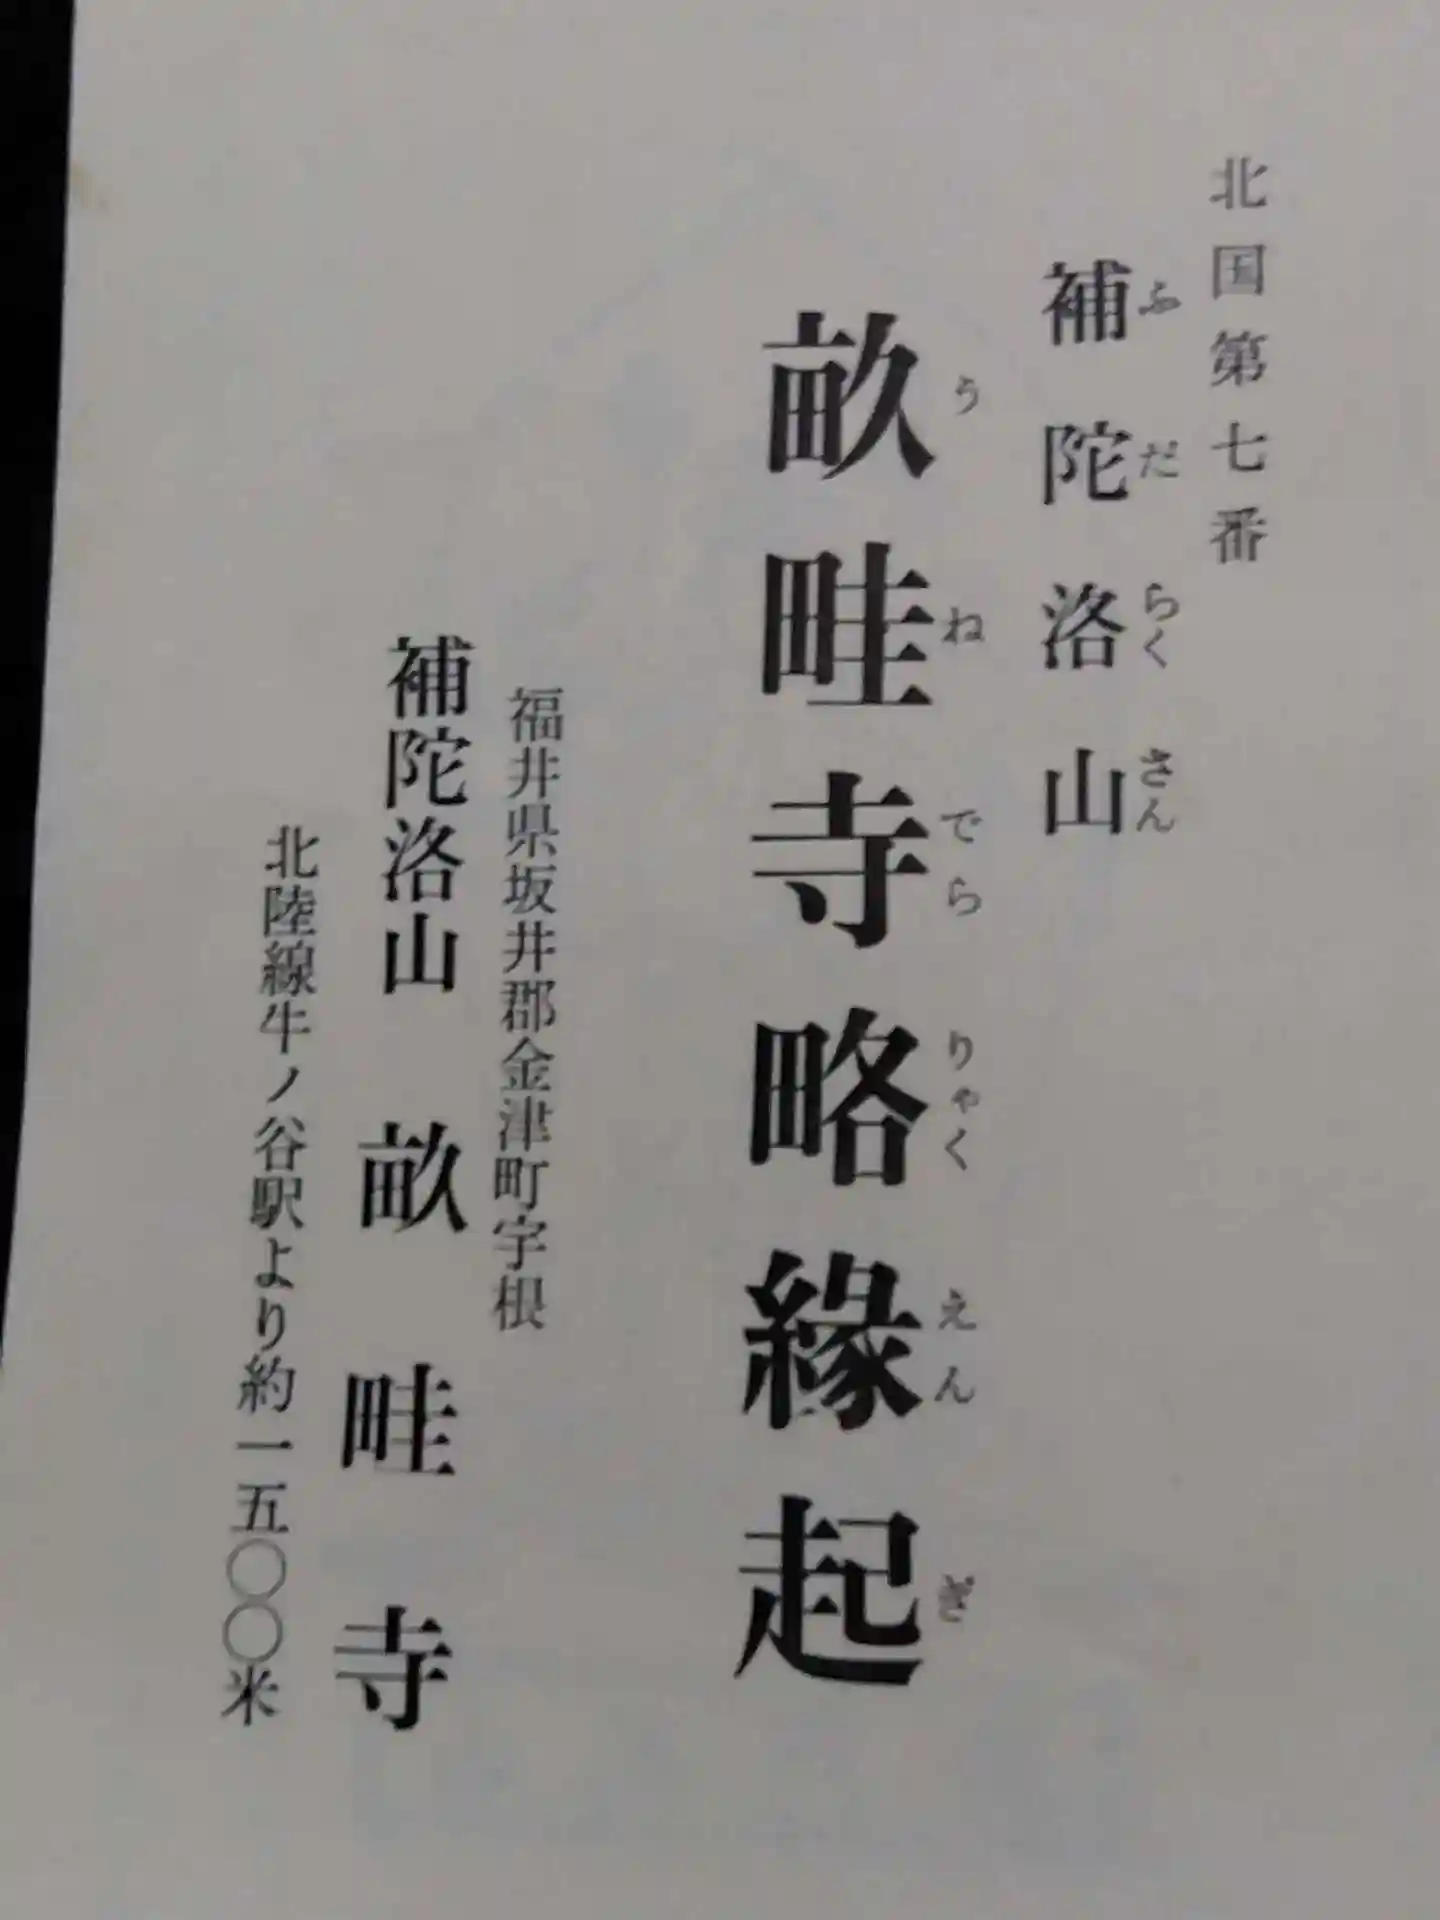 北国第七番
補陀洛山
ふだらくさん
畝畦寺略緣起
うねでらりゃくえんぎ
福井県坂井郡金津町宇根
補陀洛山 畝畦寺
北陸線牛ノ谷駅より約一五〇〇米